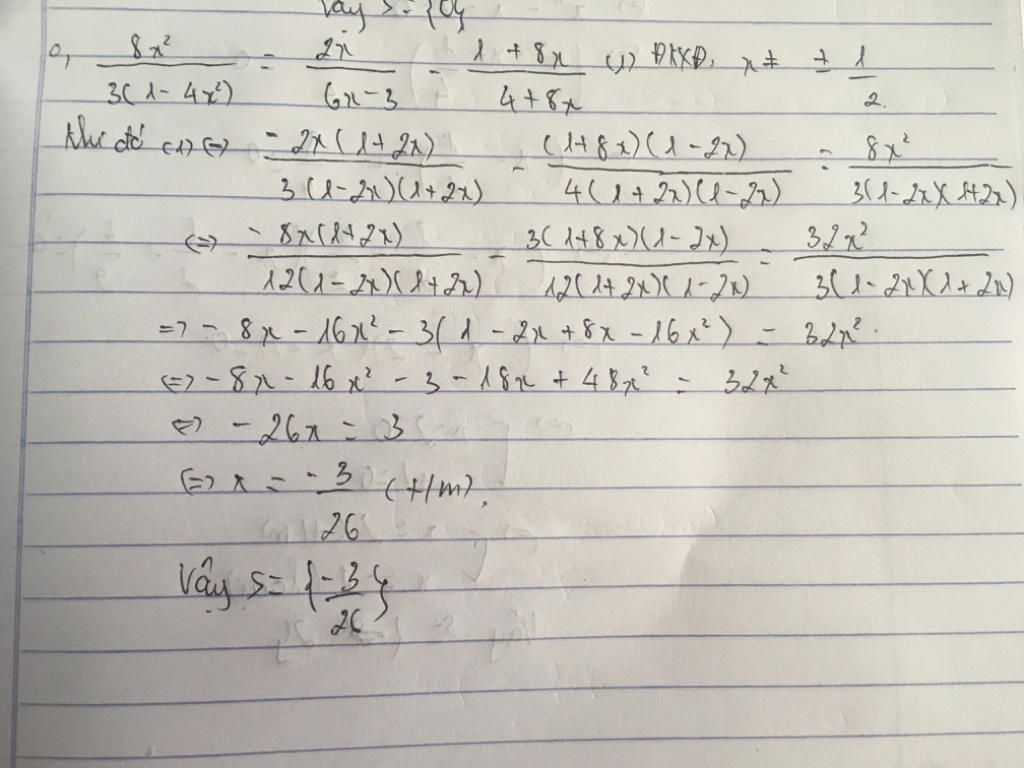 Vậy S = {0}
c, 8x²/3(1 - 4x²) = 2x/6x - 3 - 1 + 8x/4 + 8x (1) ĐKXĐ: x ≠ ± 1/2
Khi đó (1) ⇔ - 2x(1 + 2x)/3(1 - 2x)(1 + 2x) - (1 + 8x)(1 - 2x)/4(1 + 2x)(1 - 2x) = 8x²/3(1 - 2x)(1 + 2x)
⇔ - 8x(1 + 2x)/12(1 - 2x)(1 + 2x) - 3(1 + 8x)(1 - 2x)/12(1 + 2x)(1 - 2x) = 32x²/3(1 - 2x)(1 + 2x)
⇒ - 8x - 16x² - 3(1 - 2x + 8x - 16x²) = 32x²
⇔ - 8x - 16x² - 3 - 18x + 48x² = 32x²
⇔ - 26x = 3
⇔ x = - 3/26 (t/m).
Vậy S = {- 3/26}